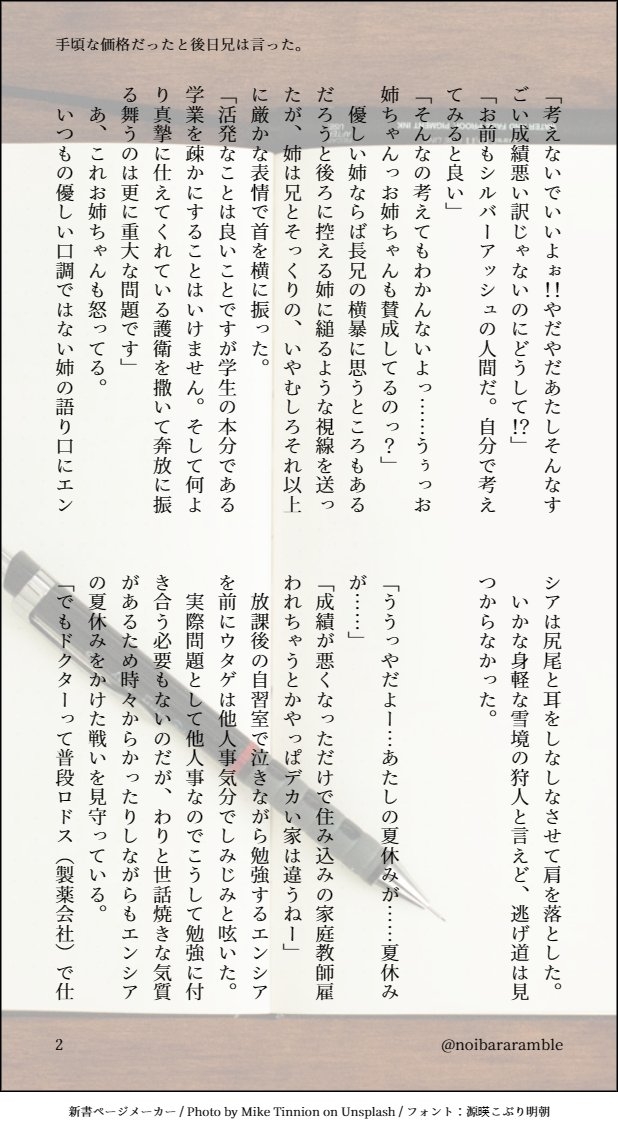 手頃な価格だったと後日兄は言った。
「考えないでいいよぉ!!やだやだあたしそんなす
ごい成績悪い訳じゃないのにどうして!?」
「お前もシルバーアッシュの人間だ。自分で考え
てみると良い」
「そんなの考えてもわかんないよっ……うぅっお
姉ちゃんっお姉ちゃんも賛成してるのっ？」
　優しい姉ならば長兄の横暴に思うところもある
だろうと後ろに控える姉に縋るような視線を送っ
たが、姉は兄とそっくりの、いやむしろそれ以上
に厳かな表情で首を横に振った。
「活発なことは良いことですが学生の本分である
学業を疎かにすることはいけません。そして何よ
り真摯に仕えてくれている護衛を撒いて奔放に振
る舞うのは更に重大な問題です」
　あ、これお姉ちゃんも怒ってる。
　いつもの優しい口調ではない姉の語り口にエン
シアは尻尾と耳をしなしなさせて肩を落とした。
　いかな身軽な雪境の狩人と言えど、逃げ道は見
つからなかった。
「ううっやだよー…あたしの夏休みが……夏休み
が……」
「成績が悪くなっただけで住み込みの家庭教師雇
われちゃうとかやっぱデカい家は違うねー」
　放課後の自習室で泣きながら勉強するエンシア
を前にウタゲは他人事気分でしみじみと呟いた。
　実際問題として他人事なのでこうして勉強に付
き合う必要もないのだが、わりと世話焼きな気質
があるため時々からかったりしながらもエンシア
の夏休みをかけた戦いを見守っている。
「でもドクターって普段ロドス（製薬会社）で仕
2
@noibararamble
新書ページメーカー / Photo by Mike Tinnion on Unsplash / フォント：源暎こぶり明朝